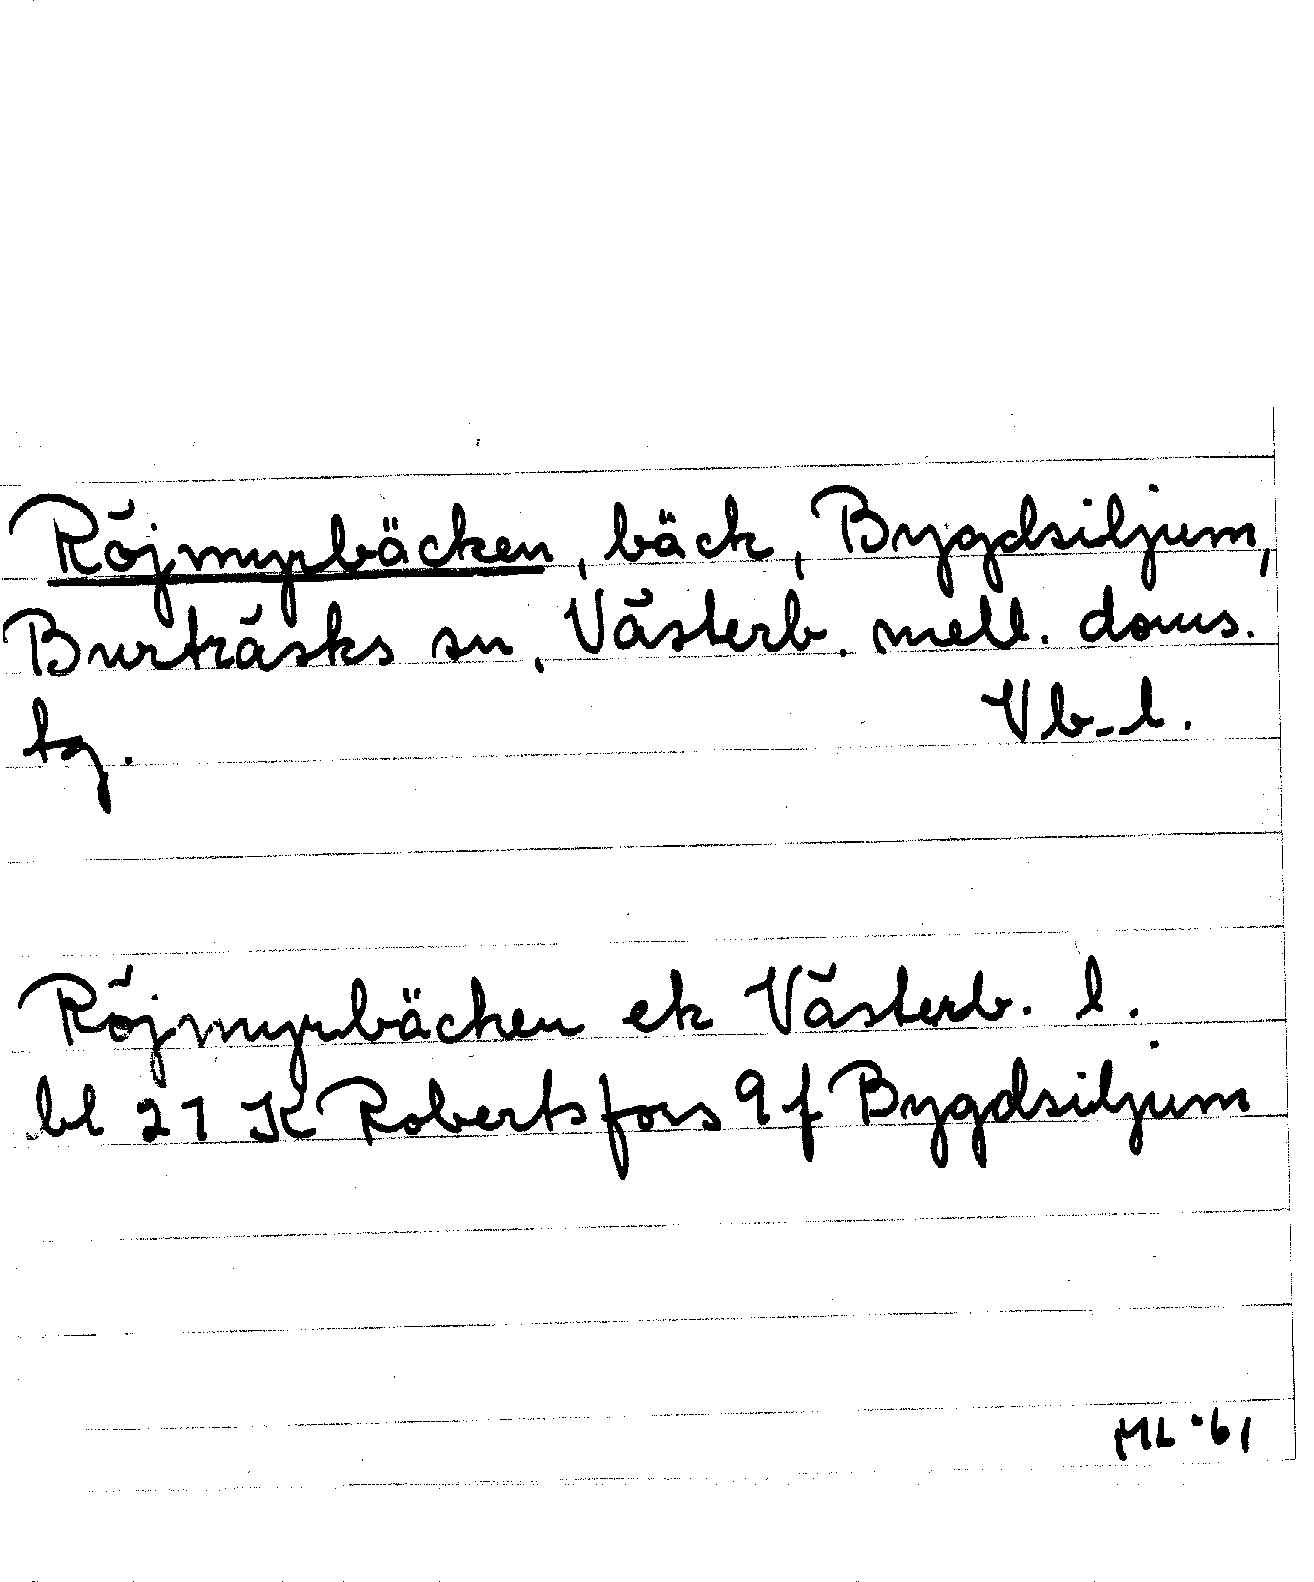 Röjmyrbäcken, bäck, Bygdsiljum,
Burträsks sn, Västerb. mell. doms.
tg. Vb. l.
Röjmyrbäcken ek Västerb. l.
bl 21 K Robertsfors 9 f Bygdsiljum
ML '61